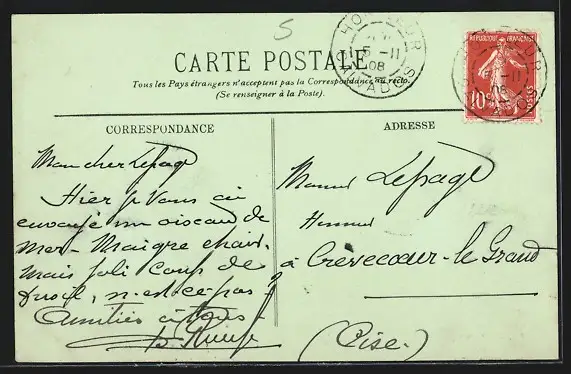 5
CARTE POSTALE
Tous les Pays étrangers n'acceptent pas la Correspondance au recto.
(Se renseigner à la Poste).
HONFLEUR
5-11
08
CALVADOS
REPUBLIQUE FRANÇAISE
10c
POSTES
CORRESPONDANCE
Mon cher Lepage
Hier je Vous ai
envoyé un oiseau de
Mer - Maigre chair,
Mais joli coup de
fusil, n-est-ce pas ?
Amitiés à tous
ADRESSE
Lepage
à Crèvecoeur-le-Grand
(Oise.)